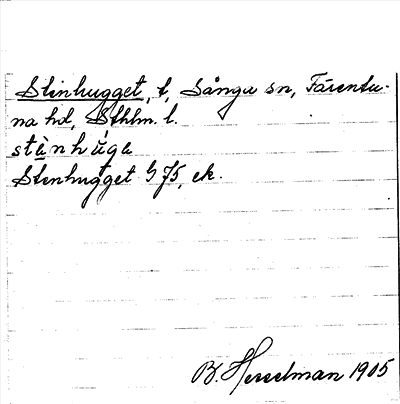 Stenhugget, t, Sånga sn, Färentu-
na hd, Sthlm. l.
stѐnhu̇ga
Stenhugget G 75, ek.
B. Hesselman 1905